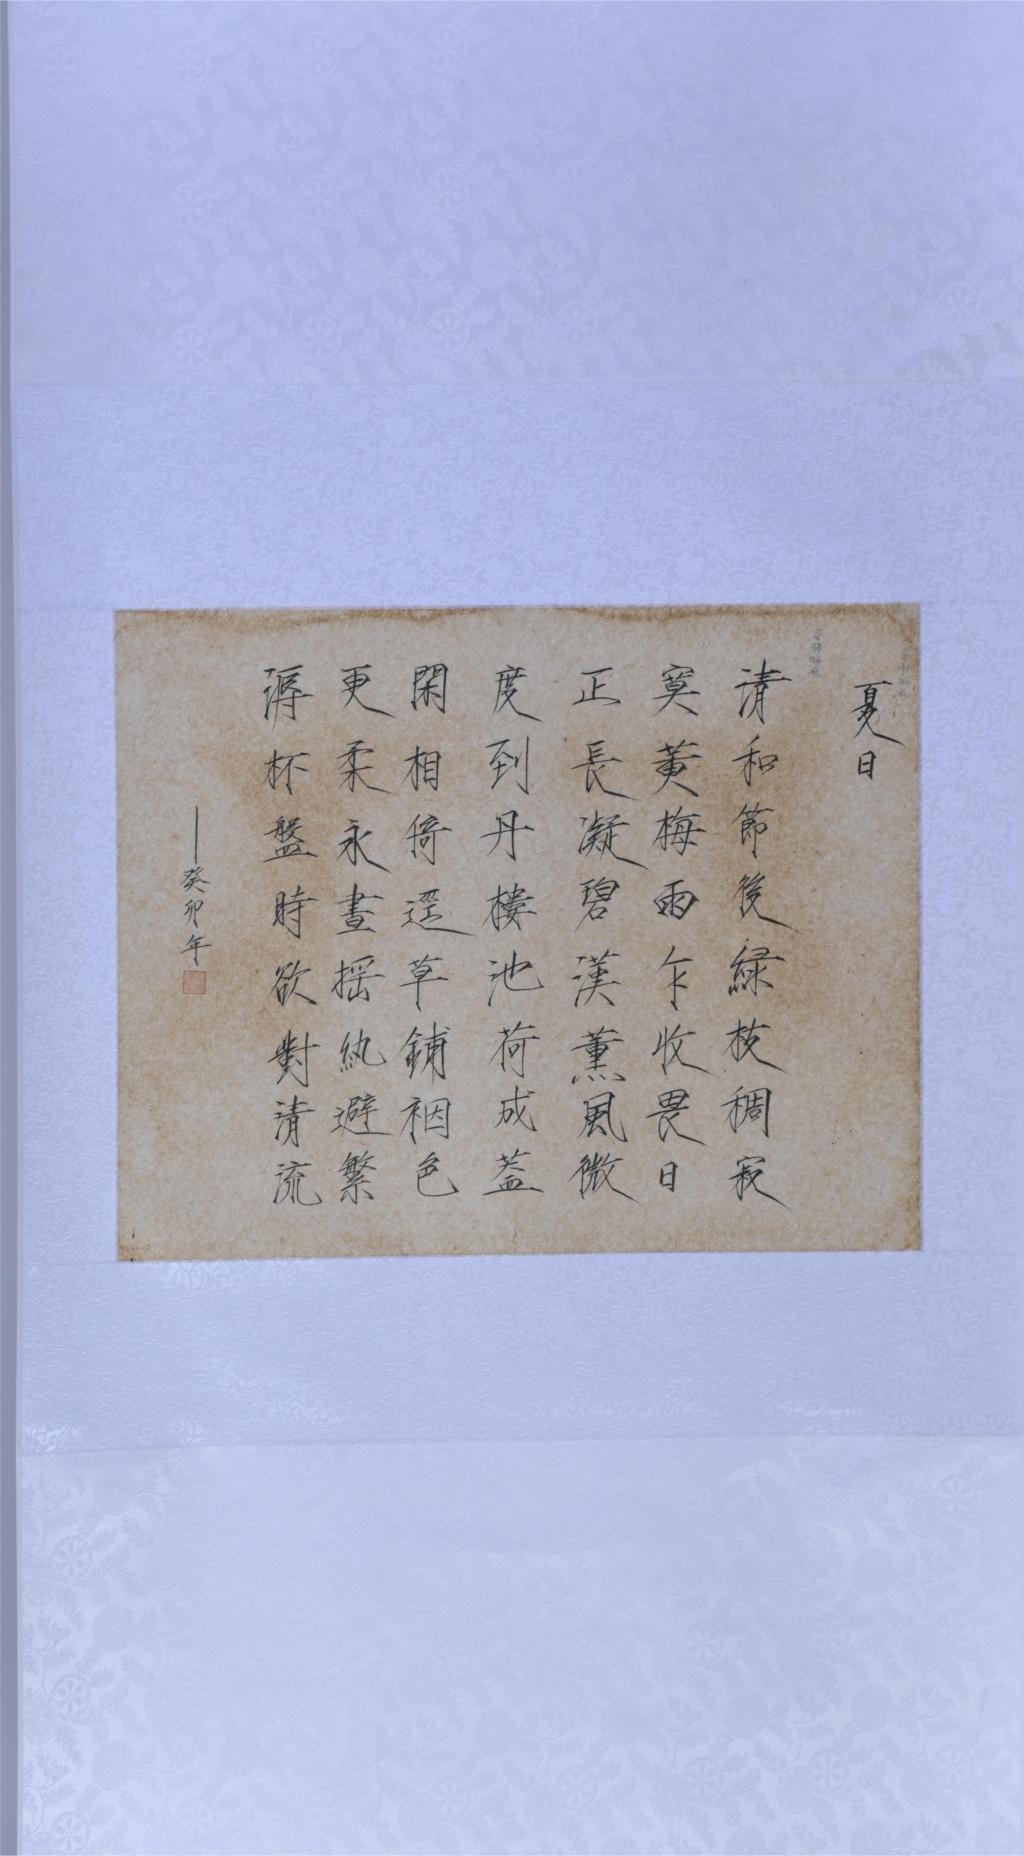 夏日
清和節後綠枝稠寂
寞黃梅雨乍收畏日
正長凝碧漢薰風微
度到丹樓池荷成蓋
閑相倚逕草鋪裀色
更柔永晝搖紈避繁
溽杯盤時欲對清流
癸卯年